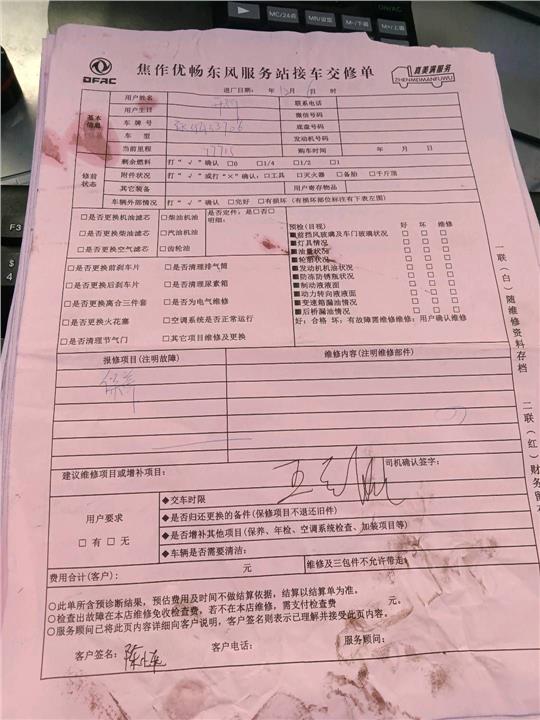 MC/24点 MN/设定 M-/下调 M+/上调
ON/AC
F3
$
4
DFAC
焦作优畅东风服务站接车交修单
真美满服务
ZHENMEIMANFUWU
进厂日期: 年 12 月 时
基本信息
用户姓名
联系电话
用户生日
微信号码
车牌号
底盘号码
车型
发动机号码
当前里程 17715
购车时间 年 月 日
修前状态
剩余燃料 打“√”确认 □0 □1/4 □1/2 □1
附件状况 打“√”或打“×”确认:□工具 □灭火器 □备胎 □千斤顶
其它装备
用户寄存物品
车辆外部情况 打“√”确认 □完好 □有损坏(有损坏部位标注有下表左图)
□是否更换机油滤芯 □柴油机油
是否定件:是□否□
明细:
□是否更换柴油滤芯 □汽油机油
□是否更换空气滤芯 □齿轮油
□是否更换前刹车片 □是否清理排气筒
□是否更换后刹车片 □是否清理尿素箱
□是否更换离合三件套 □是否为电气维修
□是否更换火花塞 □空调系统是否正常运行
□是否清理节气门 □其它项目维修及更换
预检(目视) 好 坏 维修
■前挡风玻璃及车门玻璃状况 □ □ □
■灯具情况 □ □ □
■油量状况 □ □ □
■轮胎状况 □ □ □
■发动机机油状况 □ □ □
■防冻防锈瓶状况 □ □ □
■制动液液面 □ □ □
■动力转向液液面 □ □ □
■变速箱漏油情况 □ □ □
■后桥漏油情况 □ □ □
好:合格 坏:有故障需维修维修:用户确认维修
报修项目(注明故障)
维修内容(注明维修部件)
保养
建议维修项目或增补项目:
司机确认签字:
用户要求
□ 有 □ 无
◆交车时限
◆是否归还更换的备件(保修项目不退还旧件)
◆是否增补其他项目(保养、年检、空调系统检查、加装项目等)
◆车辆是否需要清洁:
费用合计(客户): 元
维修及三包件不允许带走
○此单所含预诊断结果,预估费用及时间不做结算依据,结算以结算单为准。
○检查出故障在本店维修免收检查费,若不在本店维修,需支付检查费 元。
○服务顾问已将此页内容详细向客户说明,客户签名则表示已理解并接受此页内容。
客户签名:
客户电话:
服务顾问:
一联(白)随维修资料存档
二联(红)财务